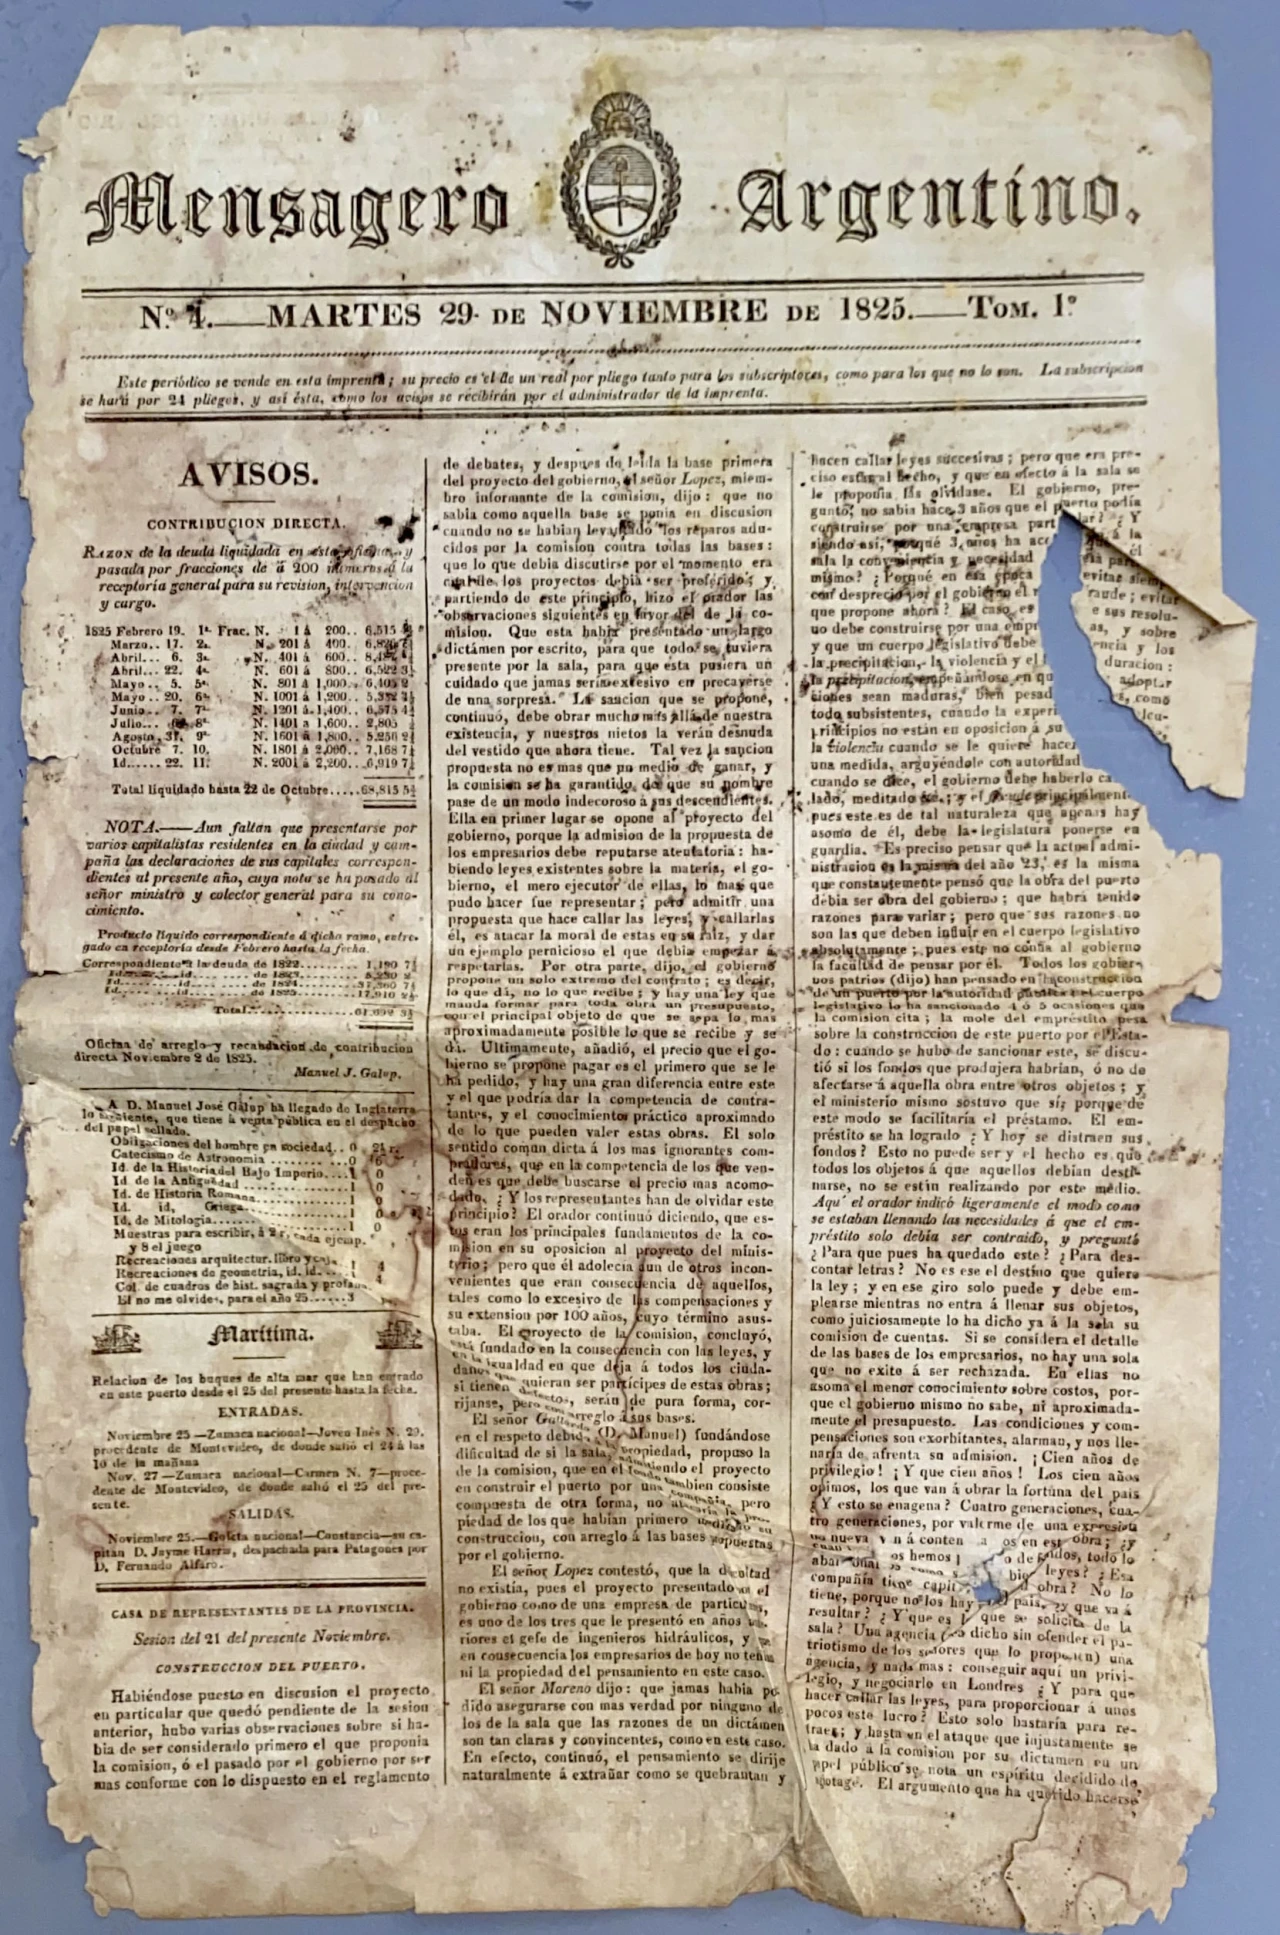 Mensagero Argentino.
N.º 4.—MARTES 29 DE NOVIEMBRE DE 1825.—TOM. 1.º
Este periódico se vende en esta imprenta; su precio es el de un real por pliego tanto para los subscriptores, como para los que no lo son. La subscripcion
se hará por 24 pliegos, y así ésta, como los avisos se recibirán por el administrador de la imprenta.
AVISOS.
CONTRIBUCION DIRECTA.
RAZON de la deuda liquidada en esta oficina, y
pasada por fracciones de á 200 números á la
receptoría general para su revision, intervencion
y cargo.
1825 Febrero 19. 1ª Frac. N. 1 á 200.. 6,515
Marzo.. 17. 2ª N. 201 á 400.
Abril... 6. 3ª N. 401 á 600..
Abril... 22. 4ª N. 601 á 800..
Mayo... 5. 5ª N. 801 á 1,000..
Mayo.. 20. 6ª N. 1001 á 1,200..
Junio.. 7. 7ª N. 1201 á 1,400.. 6,575 4½
Julio... 8ª N. 1401 a 1,600.. 2,805
Agosto, 31, 9ª N. 1601 á 1,800.. 5,250 2½
Octubre 7. 10. N. 1801 á 2,000.. 7,168 7½
Id...... 22. 11. N. 2001 á 2,200.. 6,919 7½
Total liquidado hasta 22 de Octubre.....68,815 5½
NOTA.—Aun faltan que presentarse por
varios capitalistas residentes en la ciudad y cam-
paña las declaraciones de sus capitales correspon-
dientes al presente año, cuya nota se ha pasado al
señor ministro y colector general para su cono-
cimiento.
Producto líquido correspondiente á dicho ramo, entre-
gado en receptoría desde Febrero hasta la fecha.
Correspondiente á la deuda de 1822......... 1,190 7½
Id.........id..... de 1823.........
Id.........id..... de 1824......... 37,360 7½
Id.........id..... de 1825......... 17,910 2½
Total............... 61,692 3½
Oficina de arreglo y recaudacion de contribucion
directa Noviembre 2 de 1825.
Manuel J. Galup.
A D. Manuel José Galup ha llegado de Inglaterra
lo siguiente, que tiene á venta pública en el despacho
del papel sellado.
Obligaciones del hombre en sociedad.. 0
Catecismo de Astronomia ........ 0 6
Id. de la Historia del Bajo Imperio....1 0
Id. de la Antiguedad ..............1 0
Id. de Historia Romana..........1 0
Id. id, Griega............1 0
Id. de Mitología............1 0
Muestras para escribir, á 2 r, cada ejemp.
y 8 el juego
Recreaciones arquitectur. libro y caj. 1 4
Recreaciones de geometria, id. id..... 1 4
Col. de cuadros de hist. sagrada y profana
El no me olvides, para el año 25......3
Marítima.
Relacion de los buques de alta mar que han entrado
en este puerto desde el 25 del presente hasta la fecha.
ENTRADAS.
Noviembre 25 —Zumaca nacional—Joven Inés N. 29.
procedente de Montevideo, de donde salió el 24 á las
10 de la mañana
Nov. 27 —Zumaca nacional—Carmen N. 7—proce-
dente de Montevideo, de donde salió el 25 del pre-
sente.
SALIDAS.
Noviembre 25.—Goleta nacional—Constancia—su ca-
pitan D. Jayme Harris, despachada para Patagones por
D. Fernando Alfaro.
CASA DE REPRESENTANTES DE LA PROVINCIA.
Sesion del 21 del presente Noviembre.
CONSTRUCCION DEL PUERTO.
Habiéndose puesto en discusion el proyecto
en particular que quedó pendiente de la sesion
anterior, hubo varias observaciones sobre si ha-
bia de ser considerado primero el que proponia
la comision, ó el pasado por el gobierno por ser
mas conforme con lo dispuesto en el reglamento
de debates, y despues de leida la base primera
del proyecto del gobierno, el señor Lopez, miem-
bro informante de la comision, dijo: que no
sabia como aquella base se ponia en discusion
cuando no se habian levantado los reparos adu-
cidos por la comision contra todas las bases:
que lo que debia discutirse por el momento era
cual de los proyectos debia ser preferido; y
partiendo de este principio, hizo el orador las
observaciones siguientes en favor del de la co-
mision. Que esta habia presentado un largo
dictámen por escrito, para que todo se tuviera
presente por la sala, para que esta pusiera un
cuidado que jamas seria excesivo en precaverse
de una sorpresa. La sancion que se propone,
continuó, debe obrar mucho mas allá de nuestra
existencia, y nuestros nietos la verán desnuda
del vestido que ahora tiene. Tal vez la sancion
propuesta no es mas que un medio de ganar, y
la comision se ha garantido de que su nombre
pase de un modo indecoroso á sus descendientes.
Ella en primer lugar se opone al proyecto del
gobierno, porque la admision de la propuesta de
los empresarios debe reputarse atentatoria: ha-
biendo leyes existentes sobre la materia, el go-
bierno, el mero ejecutor de ellas, lo mas que
pudo hacer fue representar; pero admitir una
propuesta que hace callar las leyes, y callarlas
él, es atacar la moral de estas en su raiz, y dar
un ejemplo pernicioso el que debia empezar á
respetarlas. Por otra parte, dijo, el gobierno
propone un solo extremo del contrato; es decir,
lo que dá, no lo que recibe; y hay una ley que
manda formar para toda obra un presupuesto,
con el principal objeto de que se sepa lo mas
aproximadamente posible lo que se recibe y se
dá. Ultimamente, añadió, el precio que el go-
bierno se propone pagar es el primero que se le
ha pedido, y hay una gran diferencia entre este
y el que podría dar la competencia de contra-
tantes, y el conocimiento práctico aproximado
de lo que pueden valer estas obras. El solo
sentido comun dicta á los mas ignorantes com-
pradores, que en la competencia de los que ven-
den es que debe buscarse el precio mas acomo-
dado. ¿Y los representantes han de olvidar este
principio? El orador continuó diciendo, que es-
tos eran los principales fundamentos de la co-
mision en su oposicion al proyecto del minis-
terio; pero que él adolecia aun de otros incon-
venientes que eran consecuencia de aquellos,
tales como lo excesivo de las compensaciones y
su extension por 100 años, cuyo término asus-
taba. El proyecto de la comision, concluyó,
está fundado en la consecuencia con las leyes, y
en la igualdad en que deja á todos los ciuda-
danos quieran ser partícipes de estas obras;
si tienen defectos, serán de pura forma, cor-
rijanse, pero con arreglo á sus bases.
El señor Gallardo (D. Manuel) fundándose
en el respeto debido propiedad, propuso la
dificultad de si la sala, admitiendo el proyecto
de la comision, que en el fondo tambien consiste
en construir el puerto por una compañia, pero
compuesta de otra forma, no atacaria la pro-
piedad de los que habían primero
construccion, con arreglo á las bases propuestas
por el gobierno.
El señor Lopez contestó, que la dificultad
no existía, pues el proyecto presentado el
gobierno como de una empresa de particulares,
es uno de los tres que le presentó en años
riores el gefe de ingenieros hidráulicos, y
en consecuencia los empresarios de hoy no tenian
ni la propiedad del pensamiento en este caso.
El señor Moreno dijo: que jamas habia po-
dido asegurarse con mas verdad por ninguno de
los de la sala que las razones de un dictámen
son tan claras y convincentes, como en este caso.
En efecto, continuó, el pensamiento se dirije
naturalmente á extrañar como se quebrantan y
hacen callar leyes succesivas; pero que era pre-
ciso estar al hecho, y que en efecto á la sala se
le proponia las olvidase. El gobierno, pre-
guntó, no sabia hace 3 años que el puerto podia
construirse por una empresa particular? ¿Y
siendo así, porqué 3 años ha á la
sala la conveniencia y necesidad él
mismo? ¿Porqué en esa época evitar siem
con desprecio por el gobierno el fraude; evitar
que propone ahora? El caso es e sus resolu-
no debe construirse por una empr as, y sobre
y que un cuerpo legislativo debe y los
la precipitacion, la violencia y el duracion:
la precipitacion, empeñándose en qu adoptar
ciones sean maduras, bien pesad s, como
todo subsistentes, cuando la experi
principios no están en oposicion á su
la violencia cuando se le quiere hacer
una medida, arguyéndole con autoridad
cuando se dice, el gobierno debe haberlo ca
lado, meditado &c.; y el fraude principalment
pues este es de tal naturaleza que apenas hay
asomo de él, debe la legislatura ponerse en
guardia. Es preciso pensar que la actual admi-
nistracion es la misma del año 23, es la misma
que constantemente pensó que la obra del puerto
debia ser obra del gobierno; que habrá tenido
razones para variar; pero que sus razones no
son las que deben influir en el cuerpo legislativo
absolutamente; pues este no confia al gobierno
la facultad de pensar por él. Todos los gobier-
nos patrios (dijo) han pensado en la construccion
de un puerto por la autoridad pública: el cuerpo
legislativo lo ha sancionado 4 ó 5 ocasiones que
la comision cita; la mole del empréstito pesa
sobre la construccion de este puerto por el Esta-
do: cuando se hubo de sancionar este, se discu-
tió si los fondos que produjera habrían, ó no de
afectarse á aquella obra entre otros objetos; y
el ministerio mismo sostuvo que sí; porque de
este modo se facilitaria el préstamo. El em-
préstito se ha logrado ¿Y hoy se distraen sus
fondos? Esto no puede ser y el hecho es que
todos los objetos á que aquellos debian desti-
narse, no se estín realizando por este medio.
Aquí el orador indicó ligeramente el modo como
se estaban llenando las necesidades á que el em-
préstito solo debia ser contraido, y preguntó
¿Para que pues ha quedado este? ¿Para des-
contar letras? No es ese el destino que quiere
la ley; y en ese giro solo puede y debe em-
plearse mientras no entra á llenar sus objetos,
como juiciosamente lo ha dicho ya á la sala su
comision de cuentas. Si se considera el detalle
de las bases de los empresarios, no hay una sola
que no exite á ser rechazada. En ellas no
asoma el menor conocimiento sobre costos, por-
que el gobierno mismo no sabe, ni aproximada-
mente el presupuesto. Las condiciones y com-
pensaciones son exorbitantes, alarman, y nos lle-
naria de afrenta su admision. ¡Cien años de
privilegio! ¡Y que cien años! Los cien años
opimos, los que van á obrar la fortuna del pais
¿Y esto se enagena? Cuatro generaciones, cua-
tro generaciones, por valerme de una expresion
nueva á conten os en esta obra; ¿y
os hemos de todo lo
como leyes? ¿Esa
compañia tiene capit obra? No lo
tiene, porque no los hay pais, ¿y que va á
resultar? ¿Y que es que se solicita de la
sala? Una agencia (lo dicho sin ofender el pa-
triotismo de los señores que lo proponen) una
agencia, y nada mas: conseguir aquí un privi-
legio, y negociarlo en Londres ¿Y para que
hacer callar las leyes, para proporcionar á unos
pocos este lucro? Esto solo bastaría para re-
traer; y hasta en el ataque que injustamente se
ha dado á la comision por su dictamen en un
papel público se nota un espíritu decidido de
agiotage. El argumento que ha querido hacerse